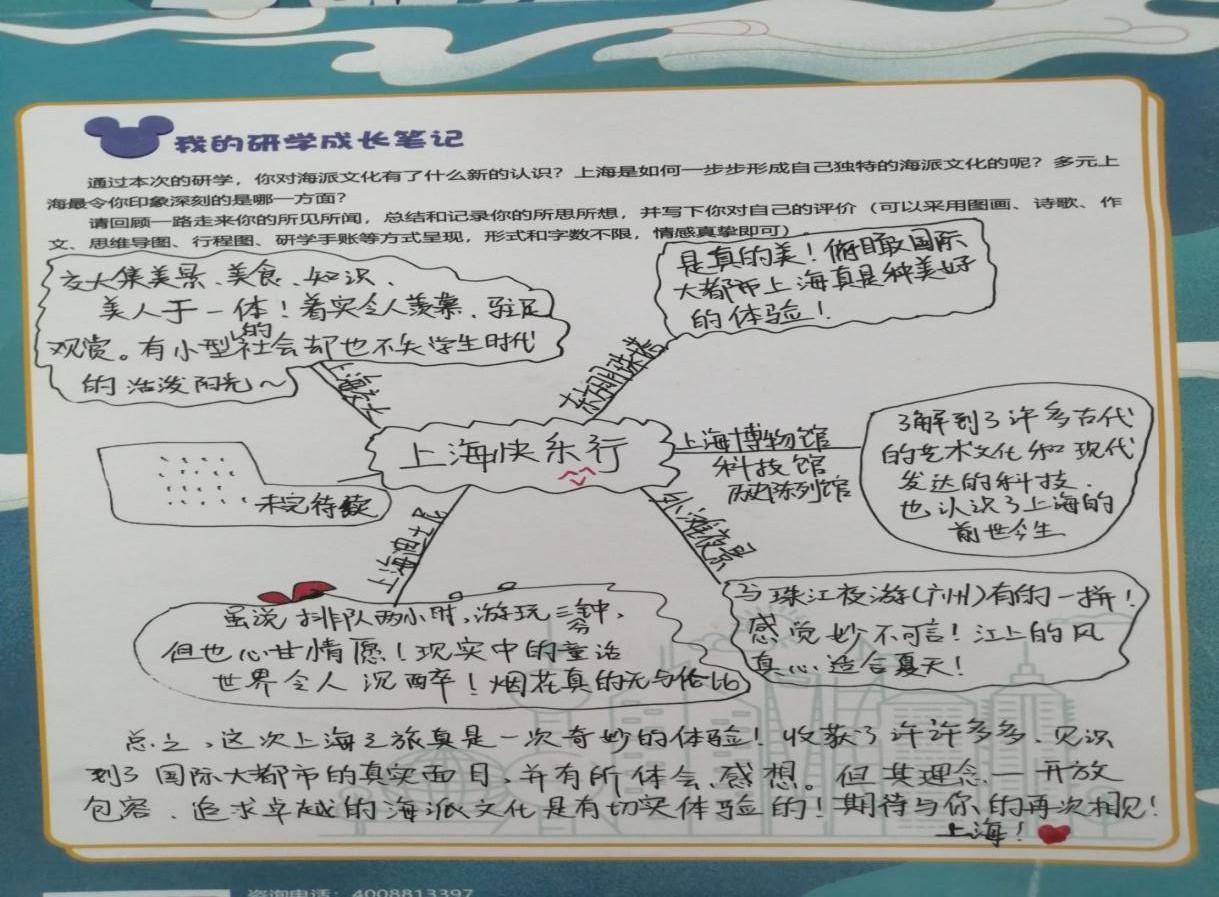 我的研学成长笔记
通过本次的研学，你对海派文化有了什么新的认识？上海是如何一步步形成自己独特的海派文化的呢？多元上
海最令你印象深刻的是哪一方面？
请回顾一路走来你的所见所闻，总结和记录你的所思所想，并写下你对自己的评价（可以采用图画、诗歌、作
文、思维导图、行程图、研学手账等方式呈现，形式和字数不限，情感真挚即可）。
交大集美景、美食、知识、
美人于一体！着实令人羡慕、驻足
观赏。有小型的社会却也不失学生时代
的活泼阳光～
上海交大
是真的美！俯瞰国际
大都市上海真是种美好
的体验！
东方明珠塔
上海快乐行
上海博物馆
科技馆
历史陈列馆
了解到了许多古代
的艺术文化和现代
发达的科技.
也认识了上海的
前世今生
未完待续
上海迪士尼
外滩夜景
虽说排队两小时，游玩三分钟，
但也心甘情愿！现实中的童话
世界令人沉醉！烟花真的无与伦比
与珠江夜游(广州)有的一拼！
感觉妙不可言！江上的风
真心适合夏天！
总之，这次上海之旅真是一次奇妙的体验！收获了许许多多、见识
到了国际大都市的真实面目，并有所体会、感想。但其理念—开放
包容、追求卓越的海派文化是有切实体验的！期待与你的再次相见！
上海！
咨询电话：4008813397